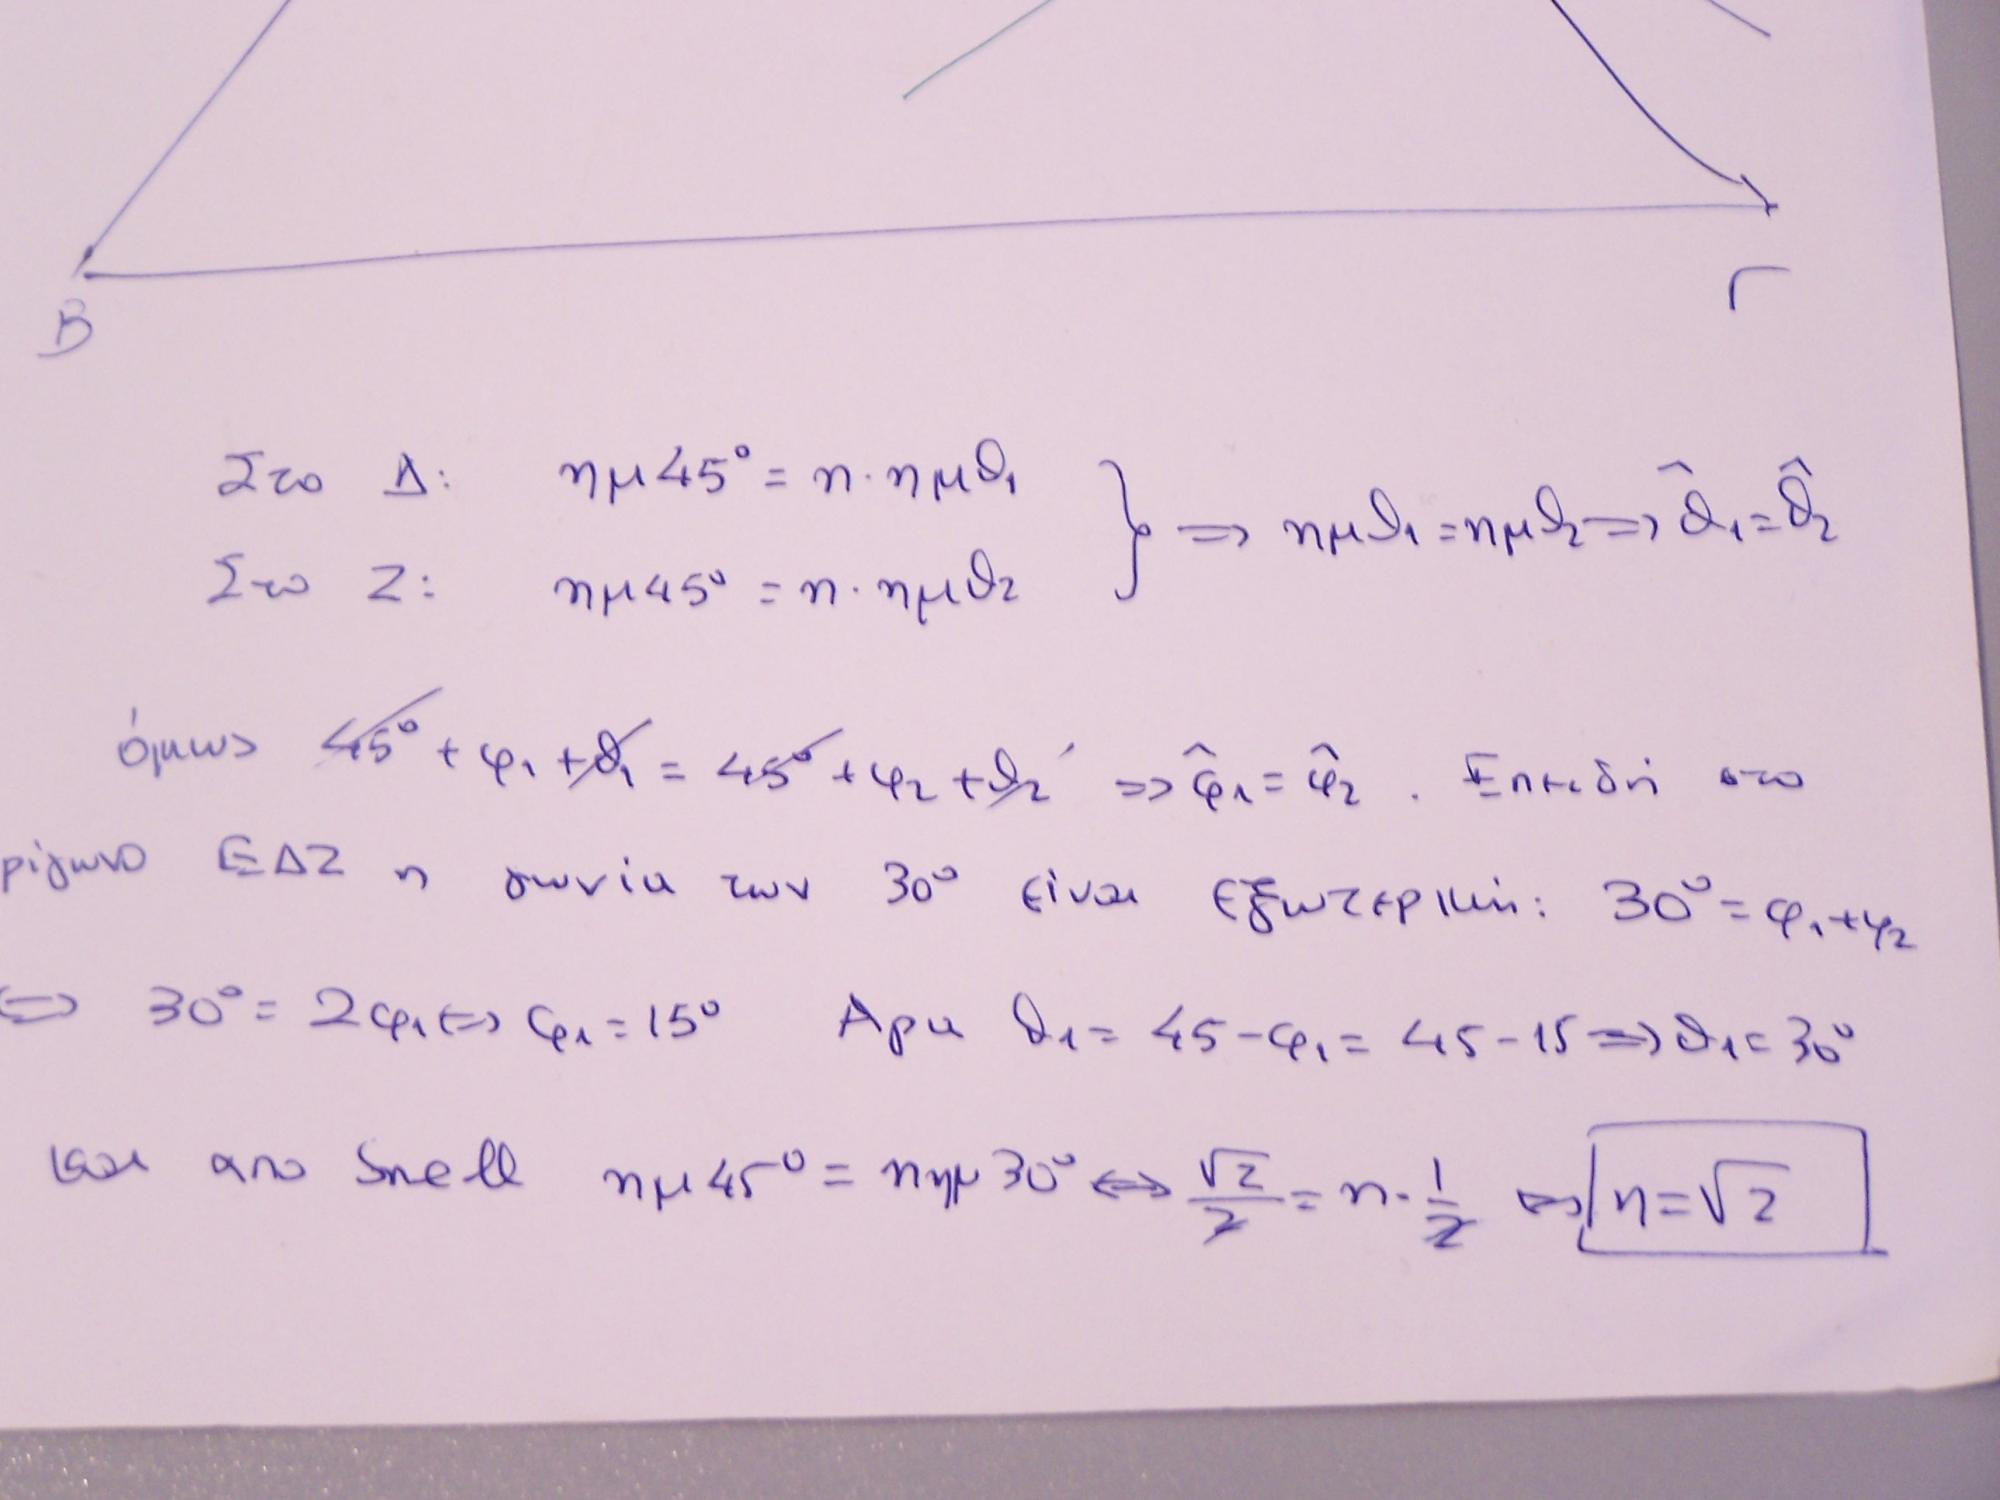 Β Γ
Στο Δ: ημ45° = n·ημθ1
Στο Ζ: ημ45° = n·ημθ2 } ⇒ ημθ1 = ημθ2 ⇒ θ̂1 = θ̂2
όμως 45° + φ1 + θ1 = 45° + φ2 + θ2 ⇒ φ̂1 = φ̂2 . Επειδή στο
ρίγωνο ΕΔΖ η γωνία των 30° είναι εξωτερική: 30° = φ1+φ2
⇔ 30° = 2φ1 ⇔ φ1 = 15° Άρα θ1 = 45-φ1 = 45-15 ⇒ θ1 = 30°
και απο Snell ημ45° = nημ30° ⇔ √2/2 = n·1/2 ⇔ n=√2